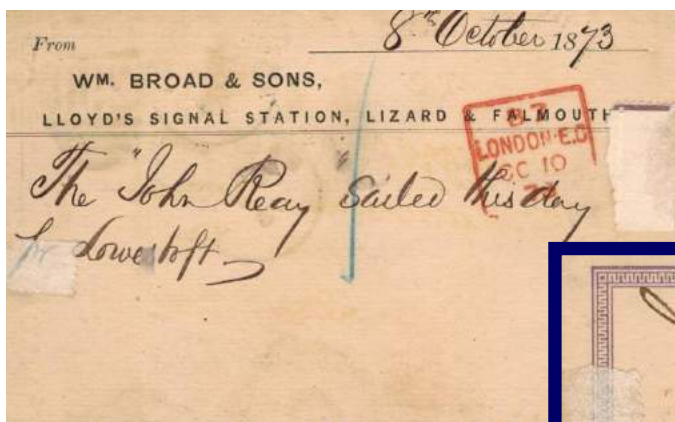 8th October 1873
From
WM. BROAD & SONS,
LLOYD'S SIGNAL STATION, LIZARD & FALMOUTH
B 7
LONDON·E.C
OC 10
73
The "John Reay" Sailed this day
for Lowestoft